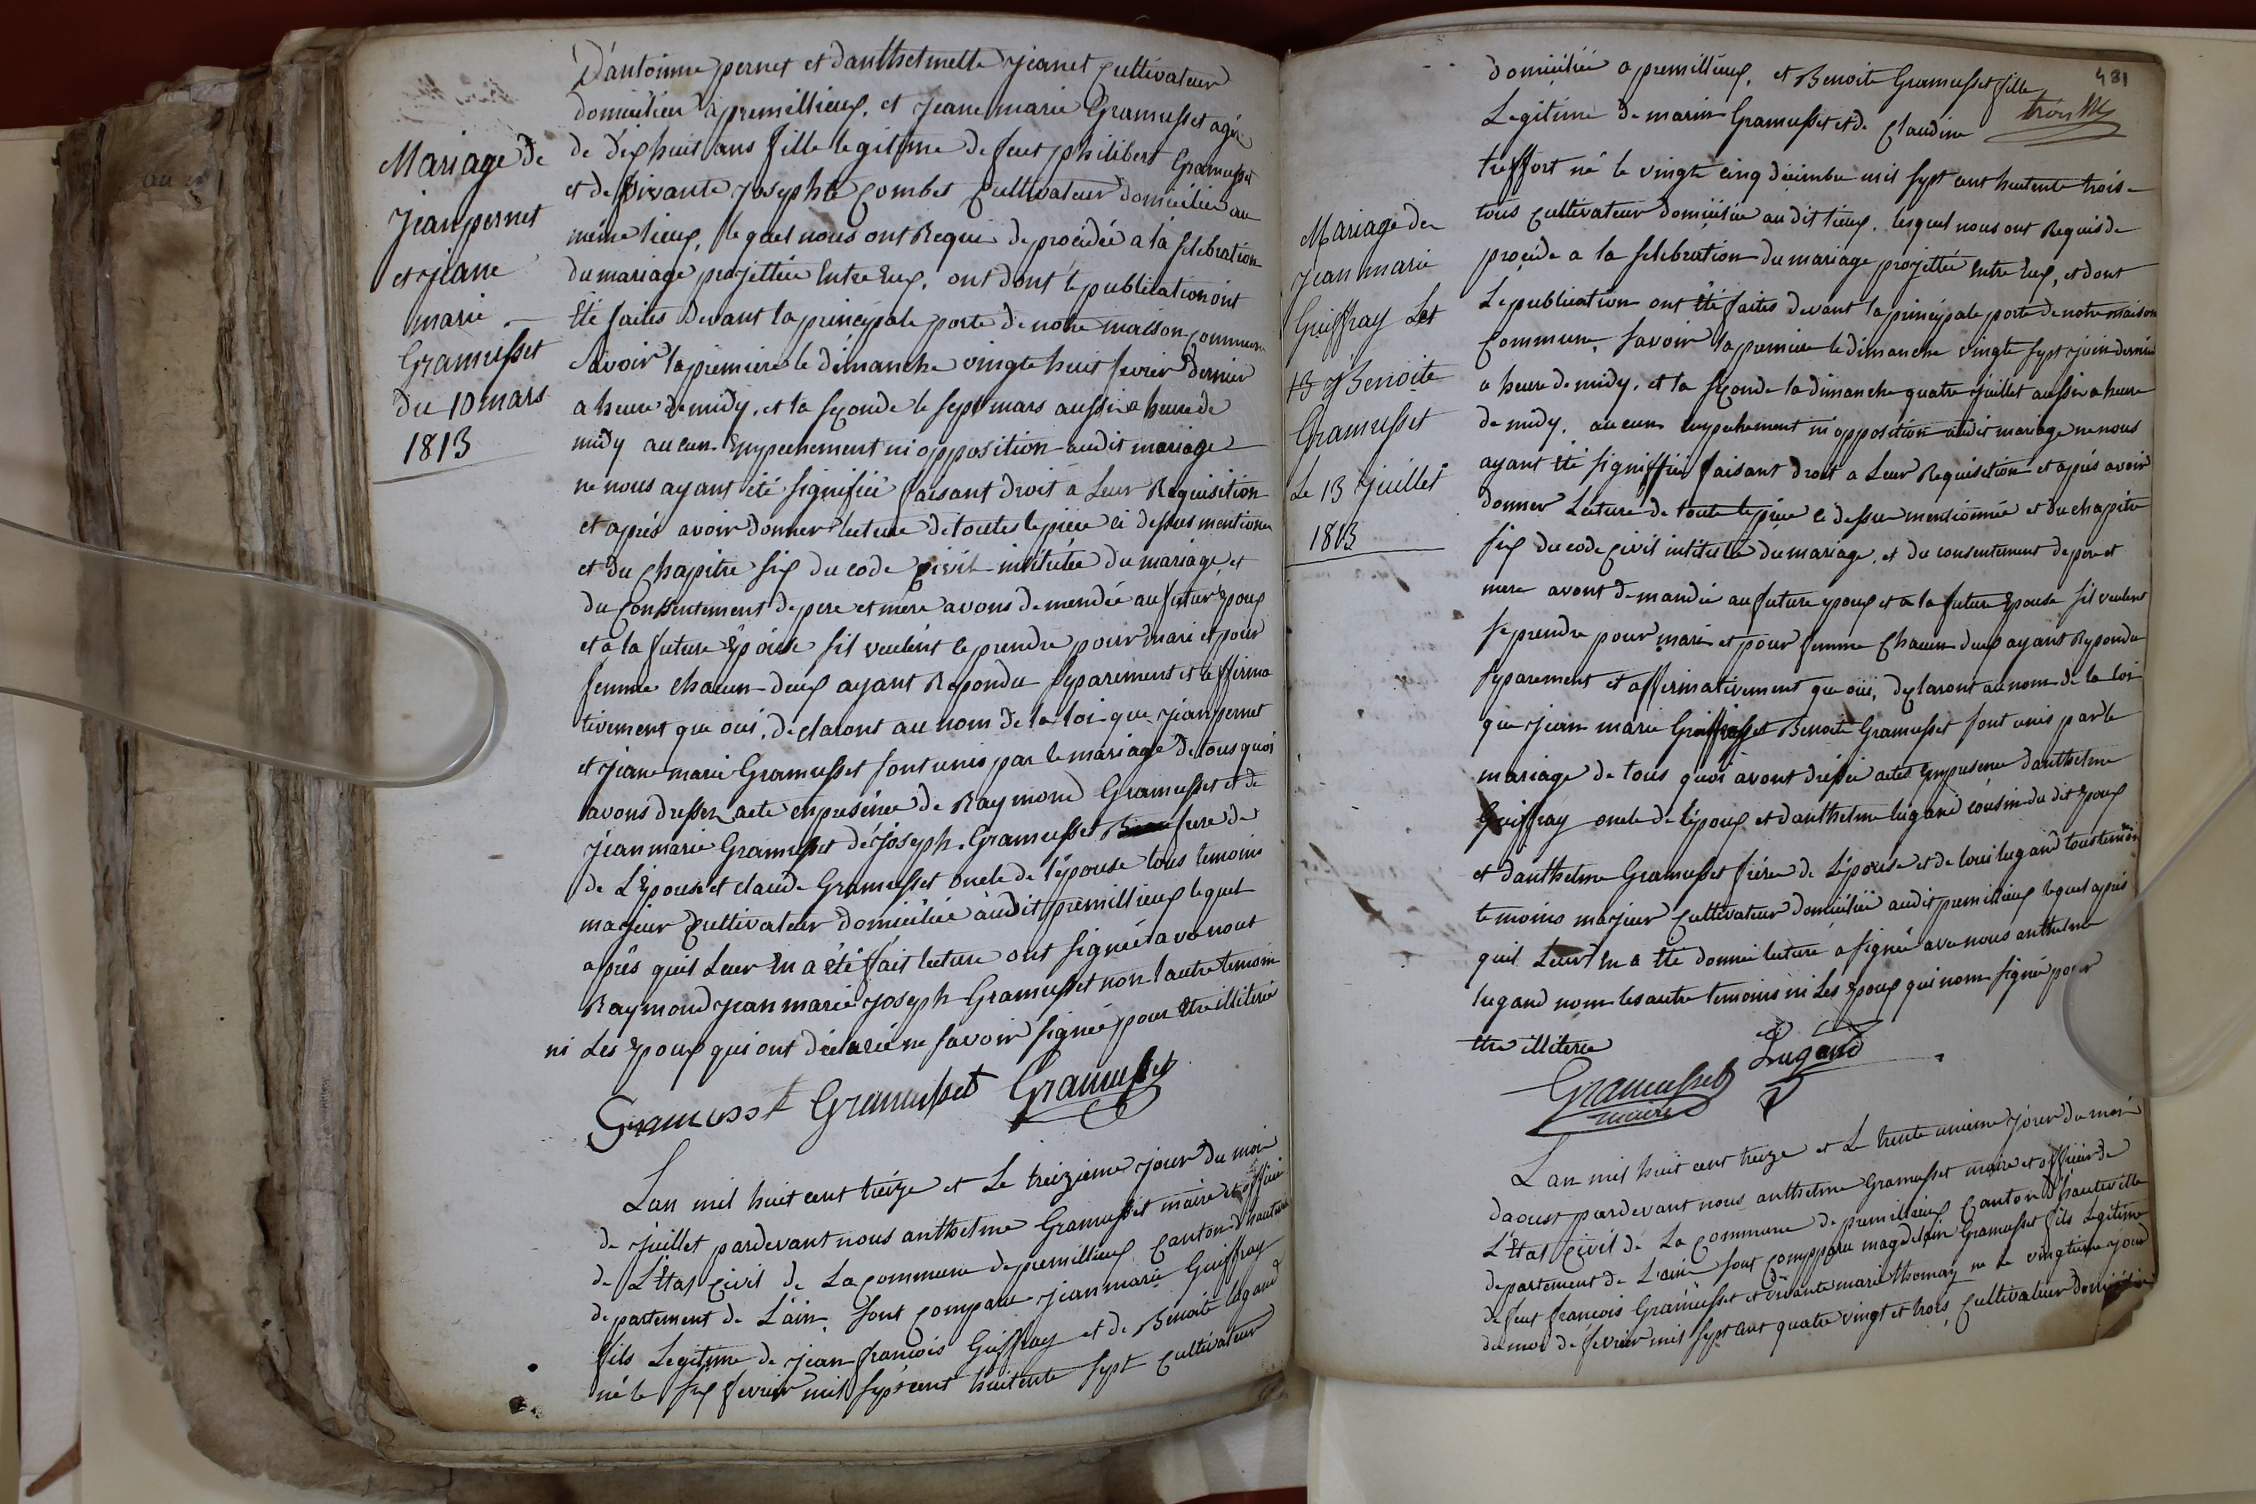 Mariage de
Jean pernet
et Jeane
marie
Gramusset
du 10 mars
1813
d'antoinne pernet et danthelmette Jeanet Cultivateur
domicilier a premillieux, et Jeane marie Gramusset agée
de dixhuit ans fille legitime de feut philibert Gramusset
et de vivante Josephte Combet Cultivateur domicilier au
même lieux, lequel nous ont Requi de procédée a la selebration
du mariage projettée Entre Eux, ont dont le publication ont
Été faites devant la principale porte de notre maison commune
Savoir la premiere le dimanche vingte huit fevrier dernier
a heure de midy, et la seconde le sept mars aussi a heure de
midy aucun Empechement ni opposition audit mariage
ne nous ayant été signifiée faisant droit a Leur Requisition
et aprés avoir donner lecture de toutes le pièce ci dessus mentionée
et du Chapitre six du code Civil intitulée du mariage, et
du Consentement de pere et mere avons demendée au futur Epoux
et a la future Epouse sil veulent le prendre pour mari et pour
femme chacun deux ayant Repondu separément et affirma
tivement que oui, declarons au nom de la loi que Jean pernet
et Jeane marie Gramusset sont unis par le mariage de tous quoi
avons dresser acte en presénce de Raymond Gramusset et de
Jean marie Gramusset de Joseph Gramusset frere de
de L'Epouse et claude Gramusset oncle de l'épouse tous temoins
majeur Cultivateur domiciliée audit premillieux lequel
aprês quil Leur En a été fait lecture ont signée avo nout
Raymond Jean marie Joseph Gramusset non l'autre temoin
ni Les Epoux qui ont déclarée ne savoir signée pour Etre illiterée
Gramusset Gramusset Gramusset
Lan mil huit cent treize et Le treizieme jour du moi
de Juillet pardevant nous anthelme Gramusset maire et officier
de L'Etat Civil de La commune de premillieux Canton d'hauteville
departement de L'ain, sont comparu Jean marie Guiffray
fils Legitime de Jean francois Guiffray et de Benoite lugand
né le six fevrier mil sept cent huitente sept Cultivateur
481
domicilié a premillieux, et Benoite Gramusset fille
Legitime de marin Gramusset et de Claudine
treffort né le vingte cinq décembre mil sept cent huitente trois
tous cultivateur domicilié audit lieux, lesquel nous ont Requis de
procéde a la selebration du mariage projettée Entre Eux, et dont
Le publication ont été faites devant la principale porte de notre maison
Commune, Savoir la premiere le dimanche vingte sept juin dernier
a heure de midy, et la seconde la dimanche quatre Juillet aussi a heure
de midy, aucun empechement ni opposition audit mariage ne nous
ayant été signiffiée faisant droit a Leur Requisition et aprés avoir
donner Lecture de toute le pièce ci dessus mentionnée et du chapitre
six du code Civil intitulée du mariage, et du consentement de pere et
mere avont demandée au future epoux et a la future Epouse sil veulent
se prendre pour mari et pour femme Chacun deux ayant Repondu
separement et affirmativement que oüi, declaront au nom de la loi
que Jean marie Guiffray et Benoite Gramusset sont unis par le
mariage de tous quoi avont dréssée actes Enpresence danthelme
Guiffray oncle de l'Epoux et danthelme lugand cousin du dit Epoux
et danthelme Gramusset frère de L'épouse et de loui lugand tous temoin
temoins majeur cultivateur domiciliée audit premillieux lequel aprés
quil Leur En a été donnée lecture a signée avo nous anthelme
lugand nom les autre temoins ni Les Epoux qui nom signée pour
Etre illiterée
Lugand
Gramusset
maire
Mariage de
Jean marie
Guiffray Let
Benoite
Gramusset
Le 13 Juillet
1813
Lan mil huit cent treize et Le trente unieme Jour du moi
daoust pardevant nous anthelme Gramusset maire et officier de
L'Etat Civil de La commune de premillieux Canton d'hauteville
departement de L'ain sont comparu Gramusset fils Legitime
de feut francois Gramusset et vivante marie thomay ne le vingtieme jour
du moi de fevrier mil sept cent quatre vingt et trois Cultivateur domicilié